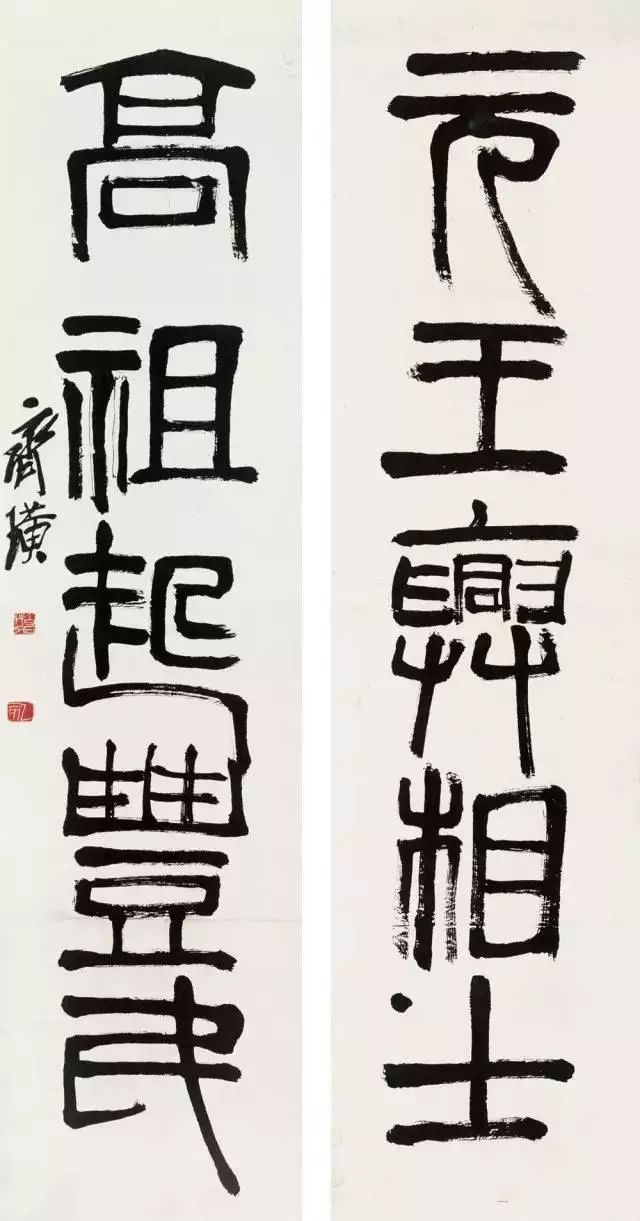 元王興相土
高祖起豐民
齊璜